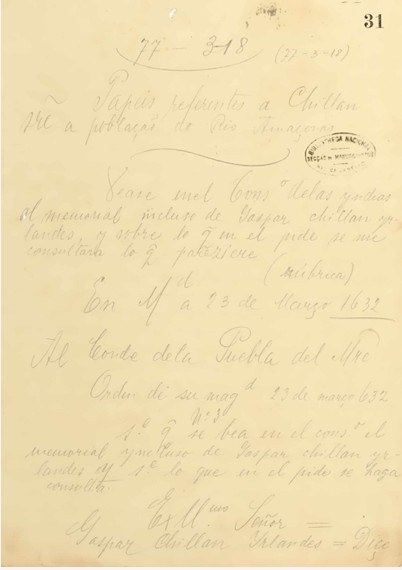 31
77 — 3-18 (77-3-18)
Papéis referentes a Chillan
a poblaçaõ do Rio Amazonas
BIBLIOTHECA NACIONAL
Vease en el Cons.º de las yndias
el memorial incluso de Gaspar chillan yr-
landes, y sobre lo q̃ en el pide se me
consultara lo q̃ pareziere
(rúbrica)
En M.d a 23 de Março 1632
Al Conde de la Puebla del Mre
Orden de su mag.d 23 de março 632
Nº 3
s.e q̃ se bea en el cons.º el
memorial yncluso de Gaspar chillan yr-
landes y s.e lo que en el pide se haga
consulta
Ex.mo Señor =
Gaspar Chillan Yrlandes = Dice